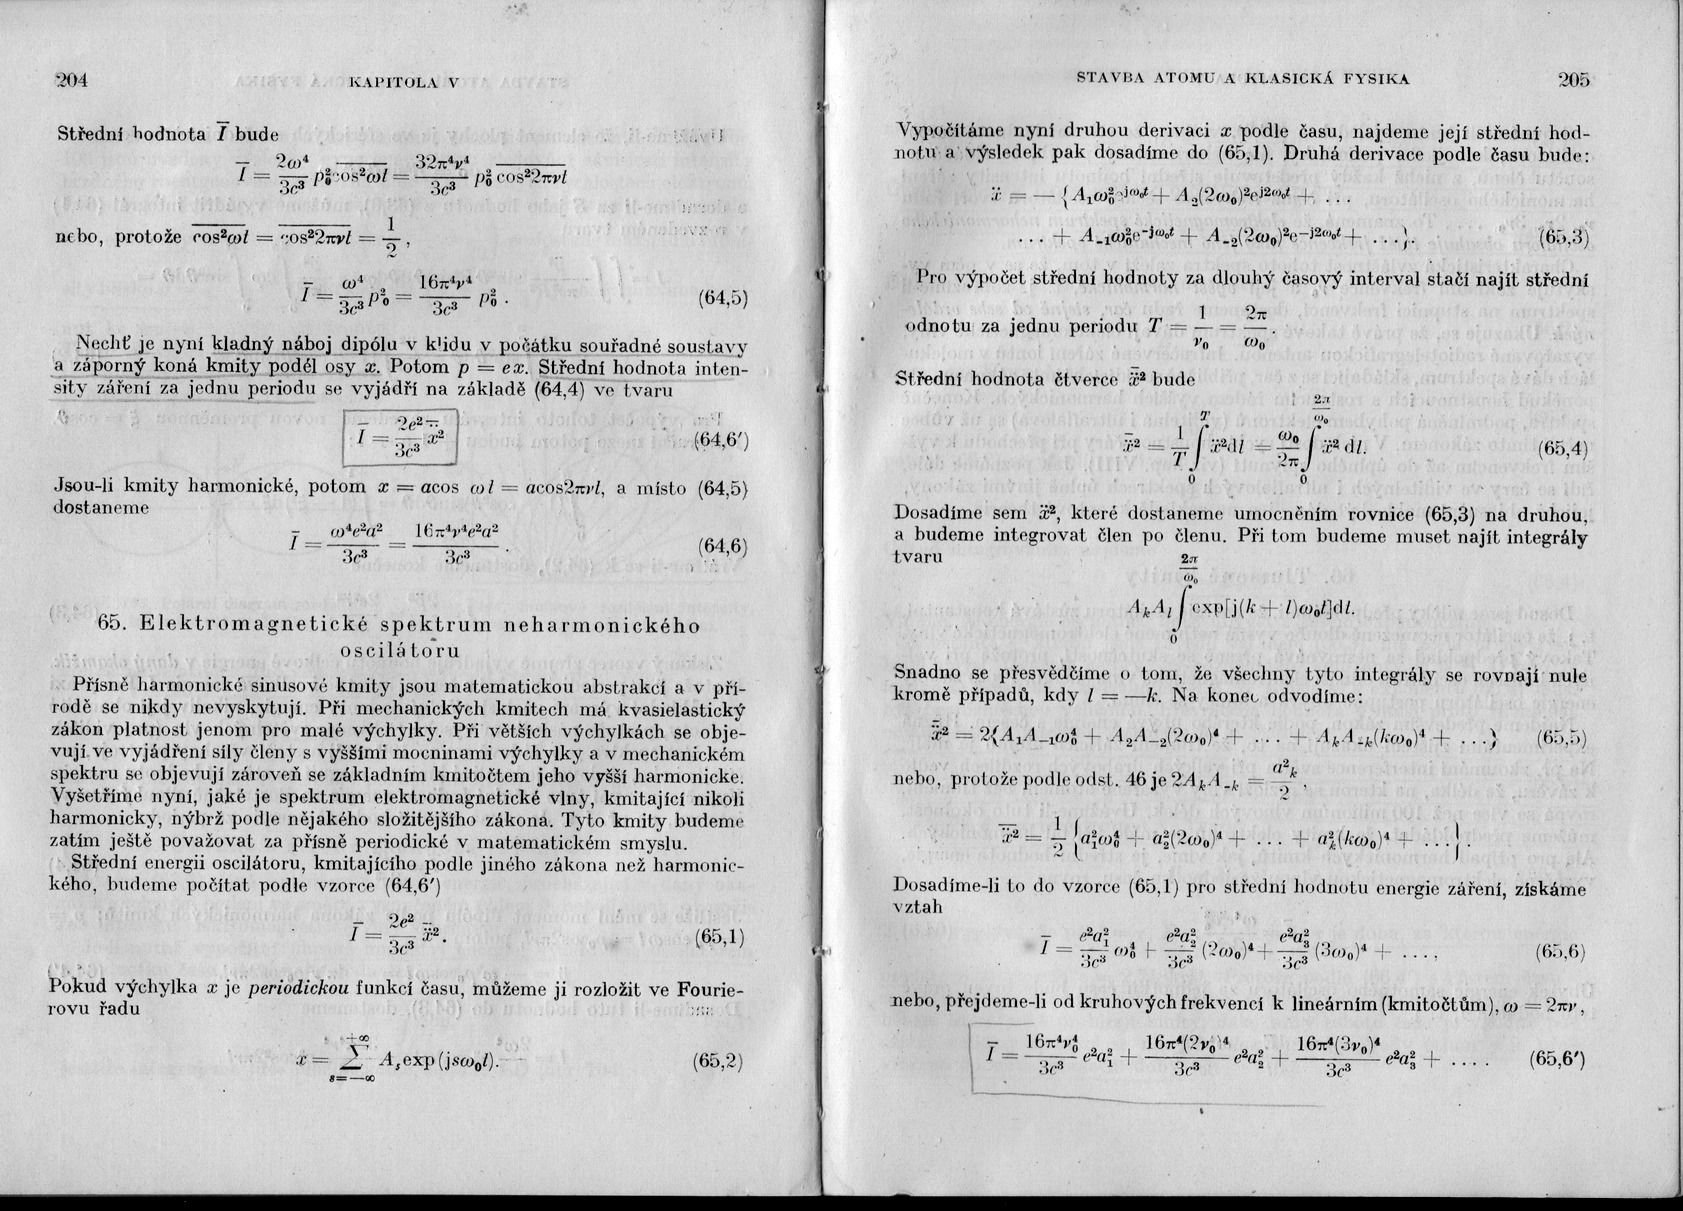 204 KAPITOLA V
Střední hodnota I̅ bude
I̅ = 2ω⁴/3c³ p₀² cos²ωt = 32π⁴ν⁴/3c³ p₀² cos²2πνt
nebo, protože cos²ωt = cos²2πνt = 1/2,
I̅ = ω⁴/3c³ p₀² = 16π⁴ν⁴/3c³ p₀² . (64,5)
Nechť je nyní kladný náboj dipólu v klidu v počátku souřadné soustavy
a záporný koná kmity podél osy x. Potom p = ex. Střední hodnota inten-
sity záření za jednu periodu se vyjádří na základě (64,4) ve tvaru
I̅ = 2e²/3c³ ẍ² (64,6′)
Jsou-li kmity harmonické, potom x = acos ωt = acos2πνt, a místo (64,5)
dostaneme
I̅ = ω⁴e²a²/3c³ = 16π⁴ν⁴e²a²/3c³ . (64,6)
65. Elektromagnetické spektrum neharmonického
oscilátoru
Přísně harmonické sinusové kmity jsou matematickou abstrakcí a v pří-
rodě se nikdy nevyskytují. Při mechanických kmitech má kvasielastický
zákon platnost jenom pro malé výchylky. Při větších výchylkách se obje-
vují ve vyjádření síly členy s vyššími mocninami výchylky a v mechanickém
spektru se objevují zároveň se základním kmitočtem jeho vyšší harmonicke.
Vyšetříme nyní, jaké je spektrum elektromagnetické vlny, kmitající nikoli
harmonicky, nýbrž podle nějakého složitějšího zákona. Tyto kmity budeme
zatím ještě považovat za přísně periodické v matematickém smyslu.
Střední energii oscilátoru, kmitajícího podle jiného zákona než harmonic-
kého, budeme počítat podle vzorce (64,6′)
I̅ = 2e²/3c³ ẍ². (65,1)
Pokud výchylka x je periodickou funkcí času, můžeme ji rozložit ve Fourie-
rovu řadu
x = +∞ ∑ s=—∞ Aₛ exp (jsω₀t). (65,2)
STAVBA ATOMU A KLASICKÁ FYSIKA 205
Vypočítáme nyní druhou derivaci x podle času, najdeme její střední hod-
notu a výsledek pak dosadíme do (65,1). Druhá derivace podle času bude:
ẍ = — {A₁ω₀²e^jω₀t + A₂(2ω₀)²e^j2ω₀t + ...
... + A₋₁ω₀²e^−jω₀t + A₋₂(2ω₀)²e^−j2ω₀t + ...}. (65,3)
Pro výpočet střední hodnoty za dlouhý časový interval stačí najít střední
odnotu za jednu periodu T = 1/ν₀ = 2π/ω₀.
Střední hodnota čtverce ẍ² bude
ẍ² = 1/T ∫₀^T ẍ²dt = ω₀/2π ∫₀^(2π/ω₀) ẍ² dt. (65,4)
Dosadíme sem ẍ², které dostaneme umocněním rovnice (65,3) na druhou,
a budeme integrovat člen po členu. Při tom budeme muset najít integrály
tvaru
AₖAₗ ∫₀^(2π/ω₀) exp[j(k + l)ω₀t]dt.
Snadno se přesvědčíme o tom, že všechny tyto integrály se rovnají nule
kromě případů, kdy l = —k. Na konec odvodíme:
ẍ² = 2{A₁A₋₁ω₀⁴ + A₂A₋₂(2ω₀)⁴ + ... + AₖA₋ₖ(kω₀)⁴ + ...} (65,5)
nebo, protože podle odst. 46 je 2AₖA₋ₖ = a²ₖ/2 ,
ẍ² = 1/2 {a₁²ω₀⁴ + a₂²(2ω₀)⁴ + ... + aₖ²(kω₀)⁴ + ...} .
Dosadíme-li to do vzorce (65,1) pro střední hodnotu energie záření, získáme
vztah
I̅ = e²a₁²/3c³ ω₀⁴ + e²a₂²/3c³ (2ω₀)⁴ + e²a₃²/3c³ (3ω₀)⁴ + ...., (65,6)
nebo, přejdeme-li od kruhových frekvencí k lineárním (kmitočtům), ω = 2πν,
I̅ = 16π⁴ν₀⁴/3c³ e²a₁² + 16π⁴(2ν₀)⁴/3c³ e²a₂² + 16π⁴(3ν₀)⁴/3c³ e²a₃² + .... (65,6′)